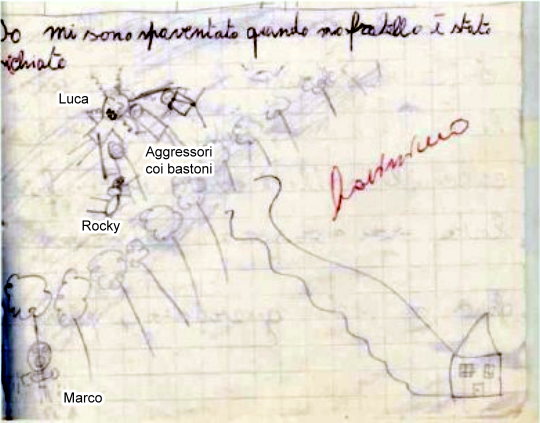 Io mi sono spaventato quando mio fratello è stato
picchiato
Luca
Aggressori
coi bastoni
Rocky
Marco